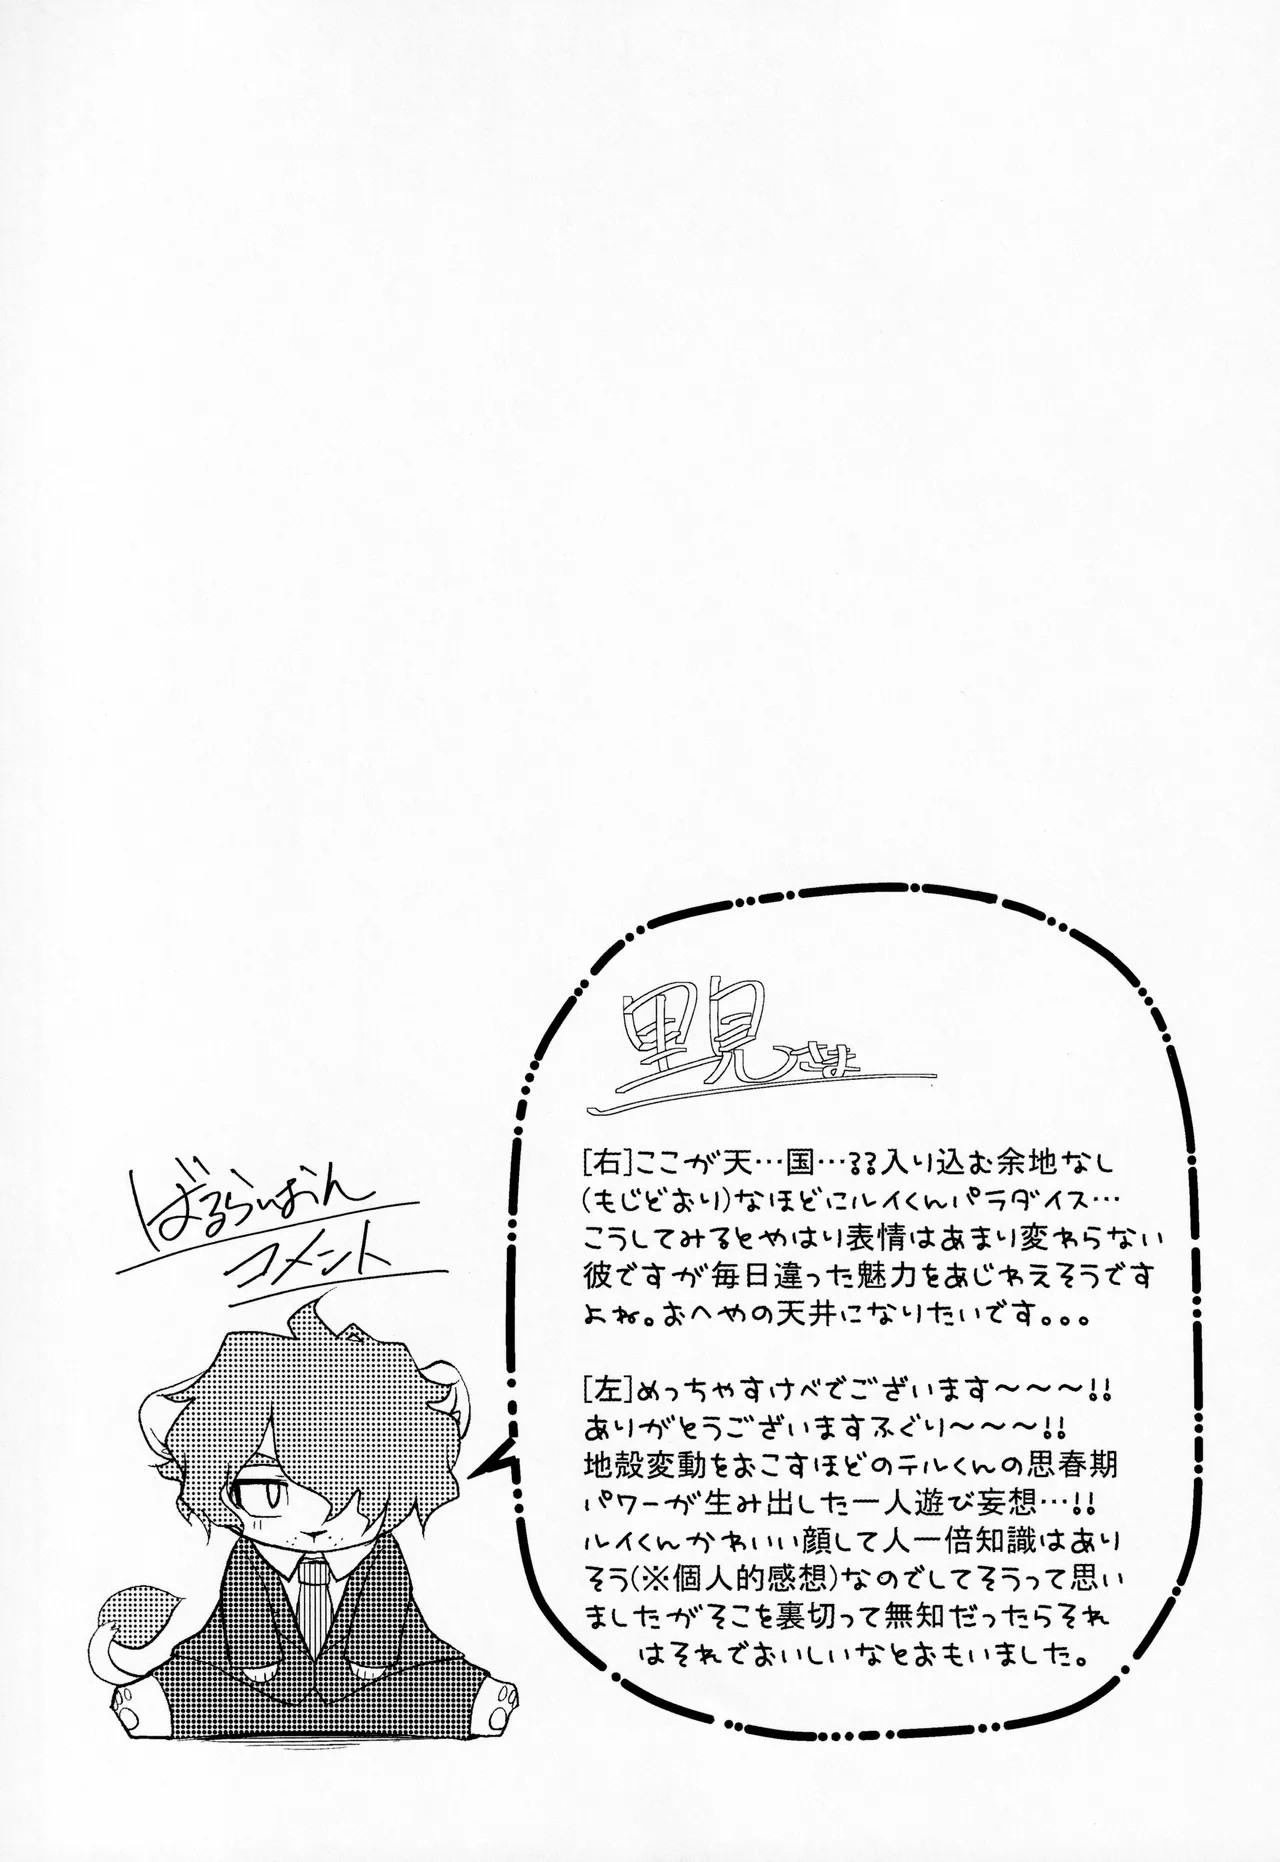 ばるらいおん
コメント
里見さま
[右]ここが天…国…??入り込む余地なし
(もじどおり)なほどにルイくんパラダイス…
こうしてみるとやはり表情はあまり変わらない
彼ですが毎日違った魅力をあじわえそうです
よね。おへやの天井になりたいです。。。
[左]めっちゃすけべでございます～～～!!
ありがとうございますふぐり～～～!!
地殻変動をおこすほどのテルくんの思春期
パワーが生み出した一人遊び妄想…!!
ルイくんかわいい顔して人一倍知識はあり
そう(※個人的感想)なのでしてそうって思い
ましたがそこを裏切って無知だったらそれ
はそれでおいしいなとおもいました。